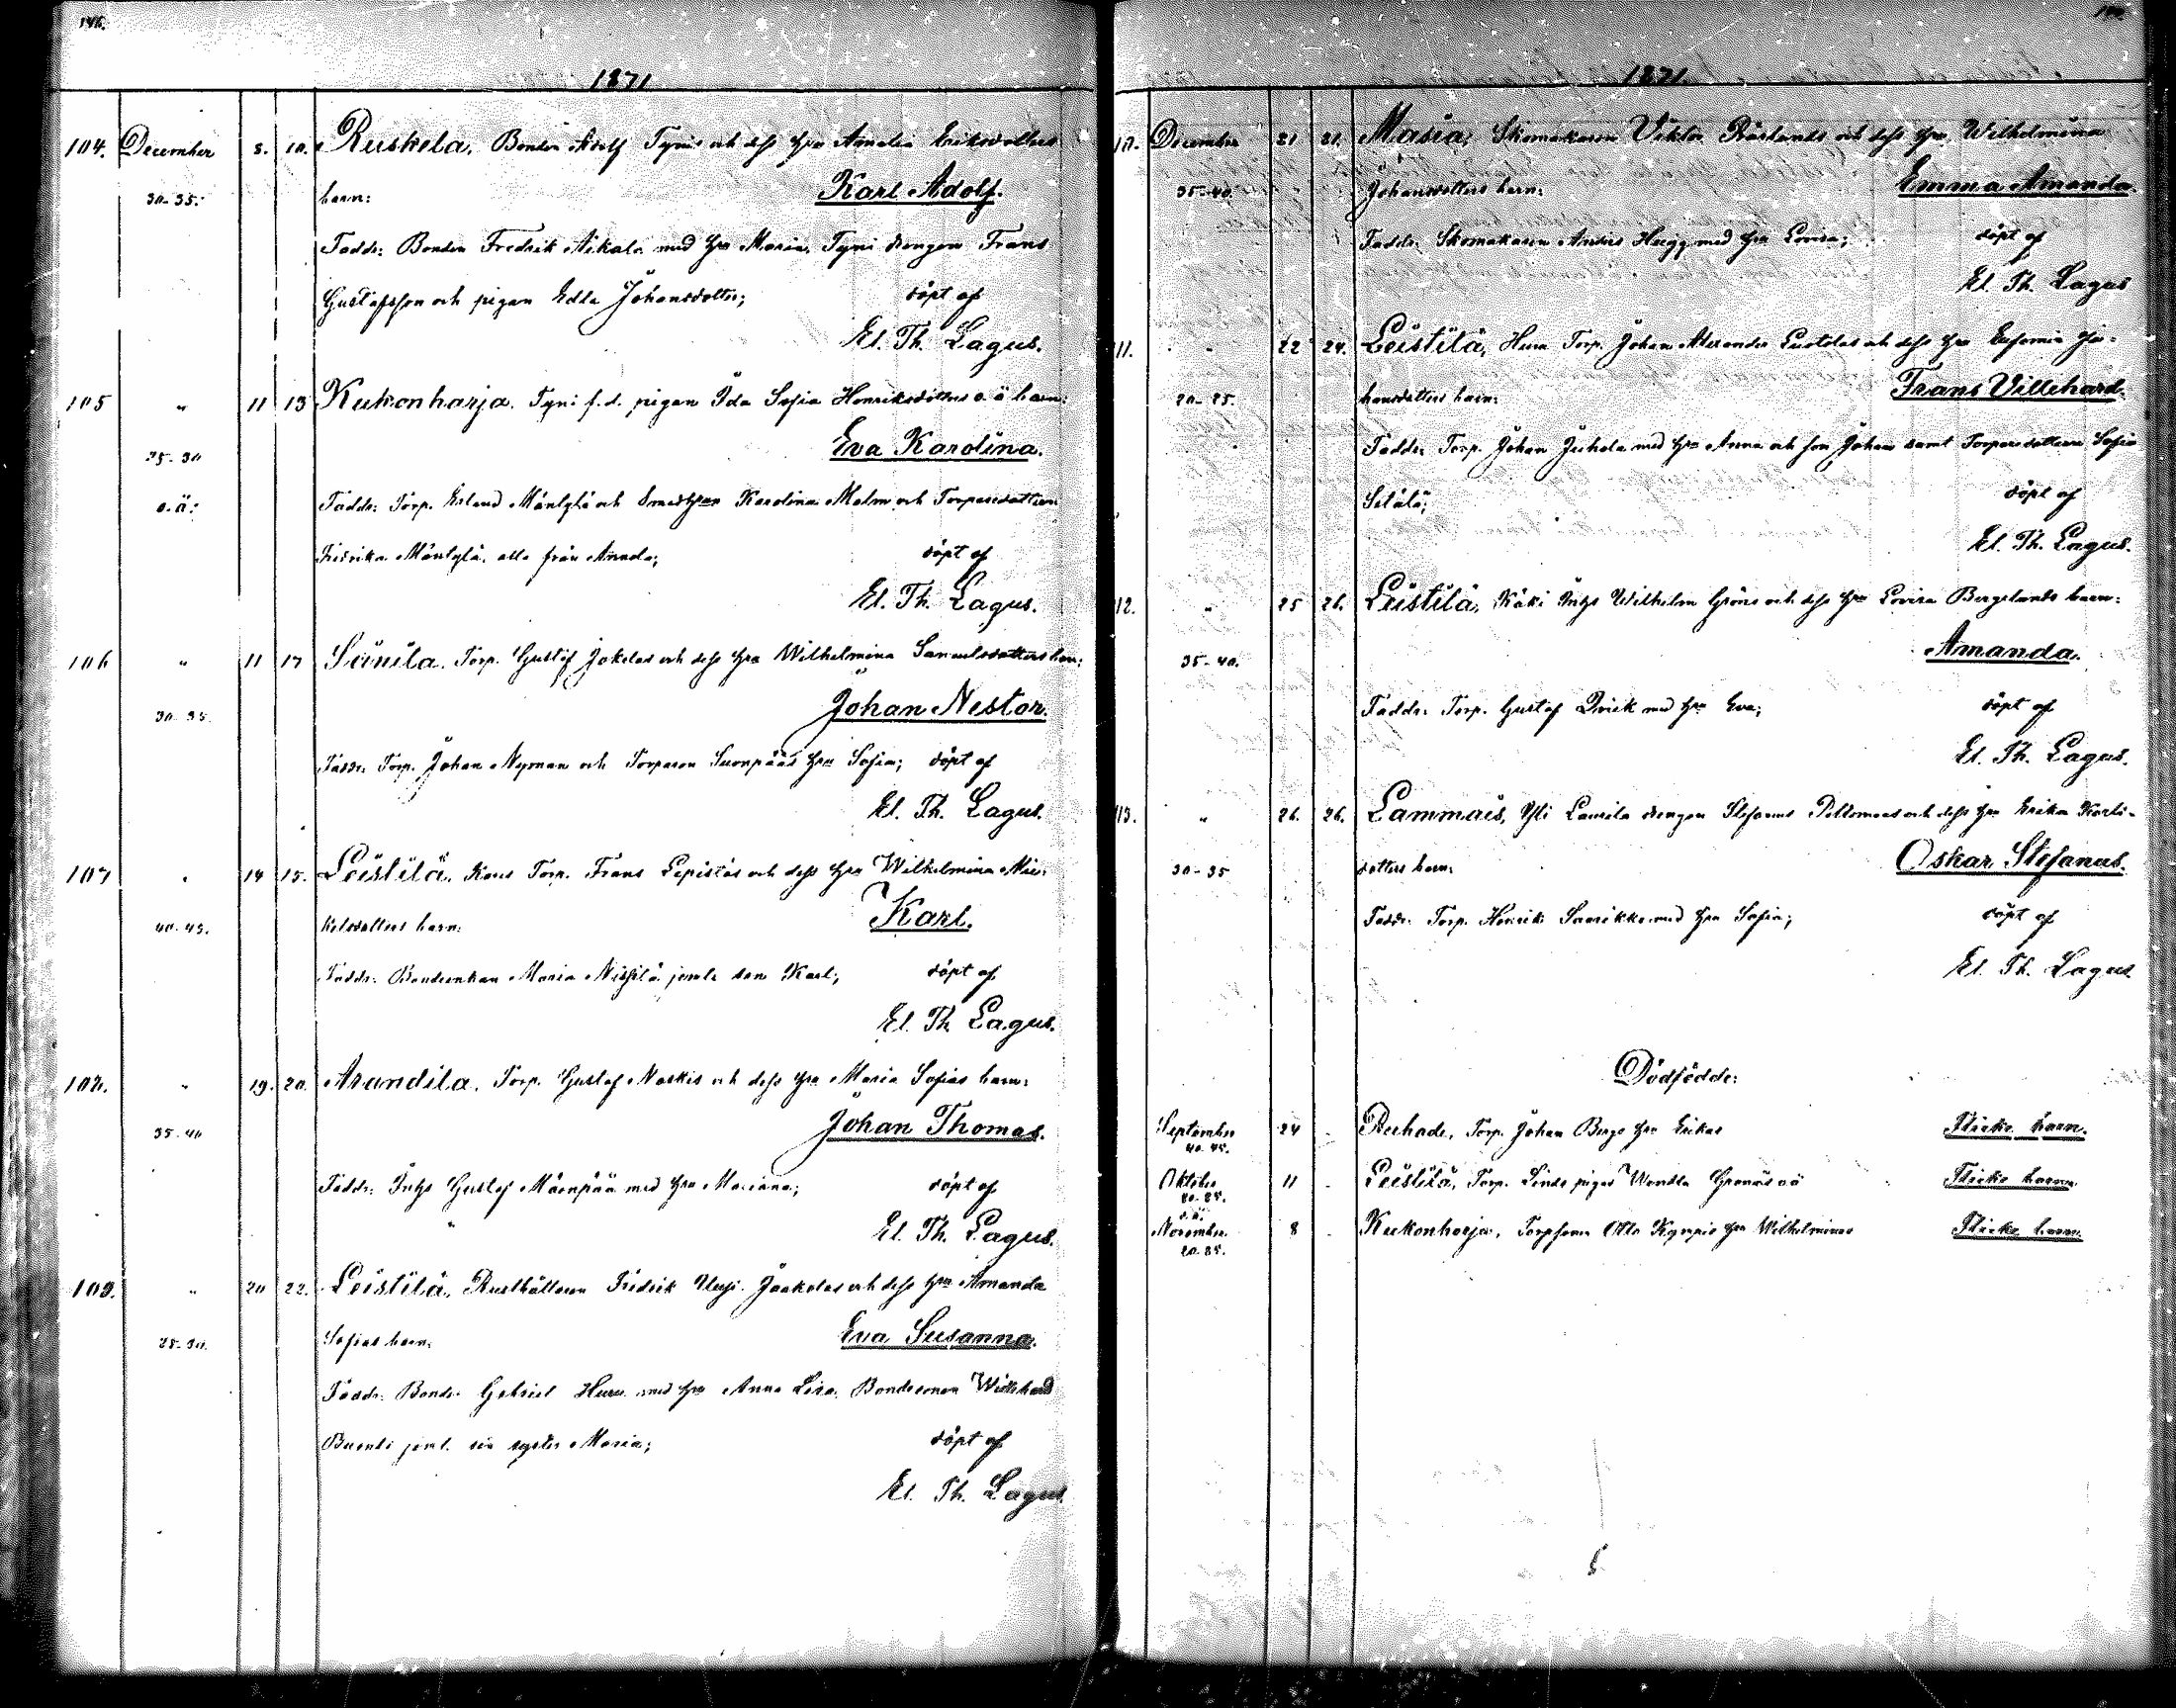 146.
1871
104. December 8. 10. Ruskela. Bonden Adolf Tynis och dess hru Amalia Eriksdotters
30-35. barn: Karl Adolf.
Faddr: Bonden Fredrik Nikala med hru Maria, Tyni drengen Frans
Gustafsson och pigan Edla Johansdotter; döpt af
El. Th. Lagus.
105 " 11 13 Kukonharja. Tyni f.d. pigan Ida Sofia Henriksdotters o.ä barn:
25-30 Eva Karolina.
o.ä: Faddr: Torp. Erland Mäntylä och Smedhrun Karolina Malm och Torparedottern
Fredrika Mäntylä, alla från Annala; döpt af
El. Th. Lagus.
106 " 11 17 Sänila. Torp. Gustaf Jokelas och dess hru Wilhelmina Samuelsdotters barn:
30-35. Johan Nestor.
Faddr: Torp. Johan Nyman och Torparen Suonpääs hru Sofia; döpt af
El. Th. Lagus.
107 " 14 15. Leistilä. Torp. Frans Lepistös och dess hru Wilhelmina Mic-
40-45. kelsdotters barn: Karl.
Faddr: Bondeenkan Maria Nissilä jemte son Karl; döpt af
El. Th. Lagus.
108. " 19. 20. Arandila. Torp. Gustaf Naskis och dess hru Maria Sofias barn:
35-40 Johan Thomas.
Faddr: Inhs Gustaf Mäenpää med hru Mariana; döpt af
El. Th. Lagus.
109. " 20 22. Leistilä. Rusthållaren Fredrik Uusi Jaakolas och dess hru Amanda
25-30. Sofias barn: Eva Susanna.
Faddr: Bond. Gabriel Huru med hru Anna Lisa, Bondesonen Willehard
jemt. sin syster Maria; döpt af
El. Th. Lagus
1871.
December 21 21. Masia, Skomakaren Viktor och dess hru Wilhelmina
35-40. Johansdotters barn: Emma Amanda.
Faddr: Skomakaren Anders Hegg med hru Lovisa; döpt af
El. Th. Lagus
11. " 22 24. Leistilä, Huru Torp. Johan Alexander och dess hru Eufemia Jo-
20-25. hansdotters barn: Frans Villehard.
Faddr: Torp. Johan Juhola med hru Anna och son Johan samt Torparedottern Sofia
Setälä; döpt af
El. Th. Lagus.
12. " 25 26. Leistilä, Käki Inhs Wilhelm Gröns och dess hru Lovisa Berglunds barn:
35-40. Amanda.
Faddr: Torp. Gustaf Qvick med hru Eva; döpt af
El. Th. Lagus.
13. " 26. 26. Lammais, Yli Laurila drengen Stefanus och dess hru Erika Karls-
30-35 dotters barn: Oskar Stefanus.
Faddr: Torp. Henrik Saarikko med hru Sofia; döpt af
El. Th. Lagus
Dödfödde:
September 24 Torp. Johan Bergs hru Erikas Flicke barn.
40-45.
Oktober 11 Leistilä, Torp. Linds pigas Wendla o.ä Flicke barn.
20-25.
o.ä.
November 8 Kukonharja, Torpsonen Otto hru Wilhelminas Flicke barn.
20-25.